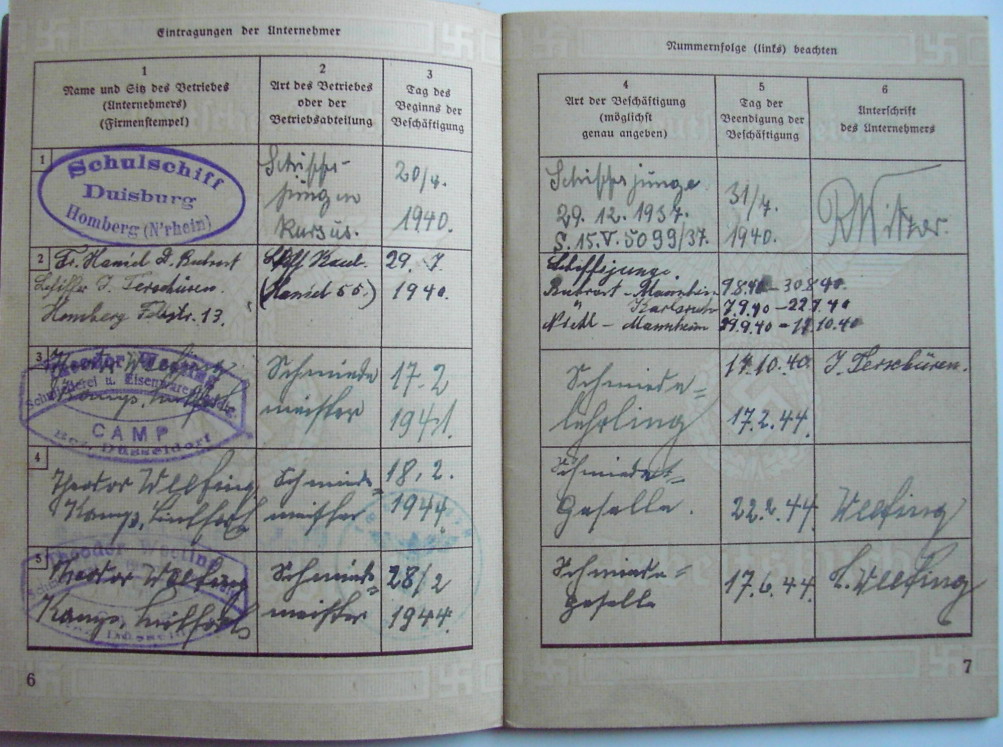 Eintragungen der Unternehmer
1
Name und Sitz des Betriebes
(Unternehmers)
(Firmenstempel)
2
Art des Betriebes
oder der
Betriebsabteilung
3
Tag des
Beginns der
Beschäftigung
1
Schulschiff
Duisburg
Homberg (N'rhein)
Schiffs-
jungen
Kursus.
20/4.
1940.
2
Fr. Haniel
Schiffer J. Terschüren.
Homberg 13.
(Haniel 55.)
29. 7.
1940.
3
Theodor
Schmiederei u. Eisenwaren
CAMP
Bez. Düsseldorf
Schmiede
meister
17.2
1941.
4
Theodor Welfing
Kamp, Lintfort
Schmiede
meister
18.2.
1944
5
Theodor Welfing
Kamp, Lintfort
Schmiede
meister
28/2
1944.
6
Nummernfolge (links) beachten
4
Art der Beschäftigung
(möglichst
genau angeben)
5
Tag der
Beendigung der
Beschäftigung
6
Unterschrift
des Unternehmers
Schiffsjunge
29. 12. 1937.
S. 15. V. 5099/37.
31/7.
1940.
Schiffsjunge.
Ruhrort - Mannheim 9.8.40 - 30.8.40.
" Karlsruhe 7.9.40 - 22.9.40
- Mannheim 29.9.40 - 17.10.40
17.10.40. J. Terschüren.
Schmiede=
lehrling
17.2.44.
Schmiede=
Geselle.
22.2.44. Welfing
Schmiede=
geselle
17.6.44. Welfing
7